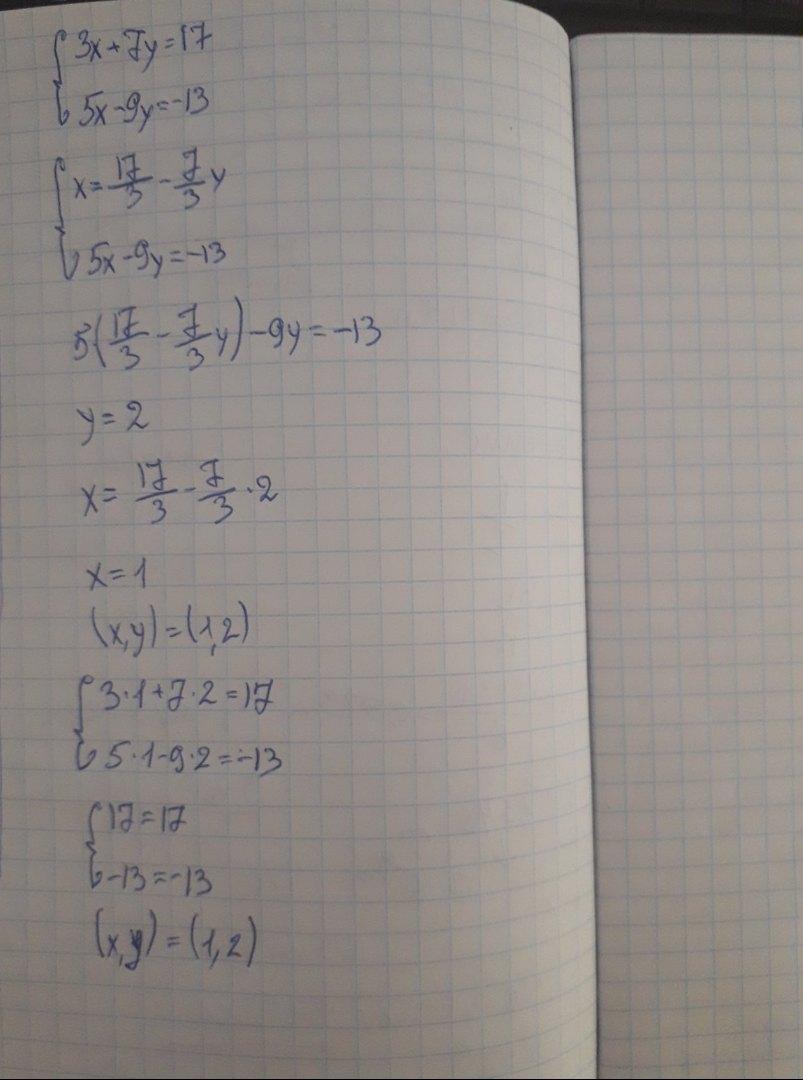 { 3x+7y=17
5x-9y=-13
{ x=17/3-7/3y
5x-9y=-13
5(17/3-7/3y)-9y=-13
y=2
x=17/3-7/3·2
x=1
(x,y)=(1,2)
{ 3·1+7·2=17
5·1-9·2=-13
{ 17=17
-13=-13
(x,y)=(1,2)